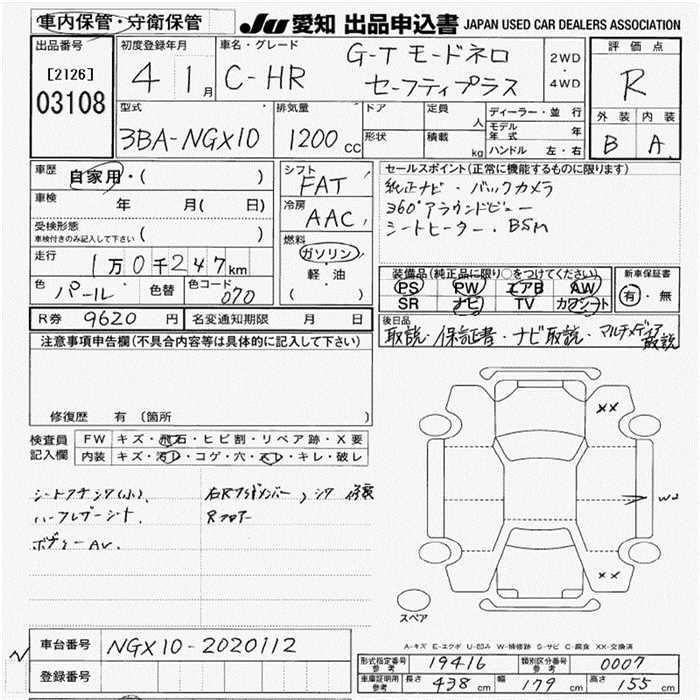 車内保管・守衛保管
JU 愛知 出品申込書 JAPAN USED CAR DEALERS ASSOCIATION
出品番号
[2126]
03108
初度登録年月
4 1月
車名・グレード
C-HR
G-T モードネロ
セーフティプラス
2WD
・
4WD
評価点
R
外装 内装
B A
型式
3BA-NGX10
排気量
1200cc
ドア 定員 人
形状 積載 kg
ディーラー・並行
モデル年式 年
ハンドル 左・右
車歴
自家用・( )
車検
年 月( 日)
受検形態
車検付きのみ記入して下さい ( )
走行
1万0千247km
色 パール 色替 色コード 070
シフト
FAT
冷房
AAC
燃料
ガソリン
軽・油
( )
セールスポイント(正常に機能するものに限ります)
純正ナビ・バックカメラ
360°アラウンドビュー
シートヒーター・BSM
装備品(純正品に限り○をつけてください)
PS PW エアB AW
SR ナビ TV カワシート
新車保証書
有・無
R券 9620円 名変通知期限 月 日
後日品
取説・保証書・ナビ取説・マルチメディア取説
注意事項申告欄(不具合内容等は具体的に記入して下さい)
修復歴 有 (箇所
検査員
記入欄
FW キズ・飛石・ヒビ割・リペア跡・X要
内装 キズ・汚レ・コゲ・穴・スレ・キレ・破レ
ハーフレザーシート.
Rフロアー
XX
W2
XX
スペア
A-キズ E-エクボ U-凹み W-補修跡 S-サビ C-腐食 XX-交換済
車台番号 NGX10-2020112
登録番号
形式指定番号 参考 19416 類別区分番号 参考 0007
車庫証明用 参考 長さ 438cm 幅 179cm 高さ 155cm